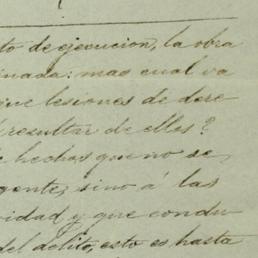 to de ejecucion, la obra
inada: mas cual va
que lesiones de dere
resultar de ellos?
hechos que no se
gente, sino á las
vidad y que condu
del delito, esto es hasta